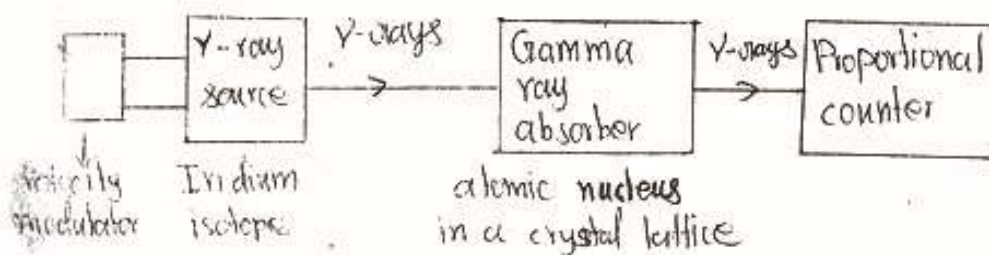 γ-ray
source
γ-rays
Gamma
ray
absorber
γ-rays
Proportional
counter
velocity
modulator
Iridium
isotope
atomic nucleus
in a crystal lattice